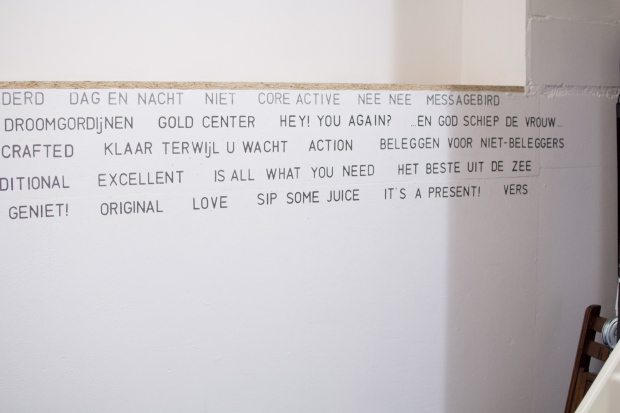 DERD DAG EN NACHT NIET CORE ACTIVE NEE NEE MESSAGEBIRD
DROOMGORDIjNEN GOLD CENTER HEY! YOU AGAIN? ...EN GOD SCHIEP DE VROUW...
CRAFTED KLAAR TERWIjL U WACHT ACTION BELEGGEN VOOR NIET-BELEGGERS
DITIONAL EXCELLENT IS ALL WHAT YOU NEED HET BESTE UIT DE ZEE
GENIET! ORIGINAL LOVE SIP SOME JUICE IT'S A PRESENT! VERS